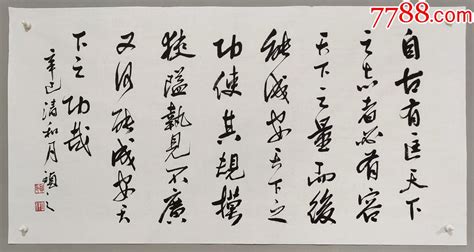 自古有匡天下
之志者必有容
天下之量而後
能成安天下之
功使其規模
狹隘執見不廣
又何能成安天
下之功哉
辛巳清和月
7788.com